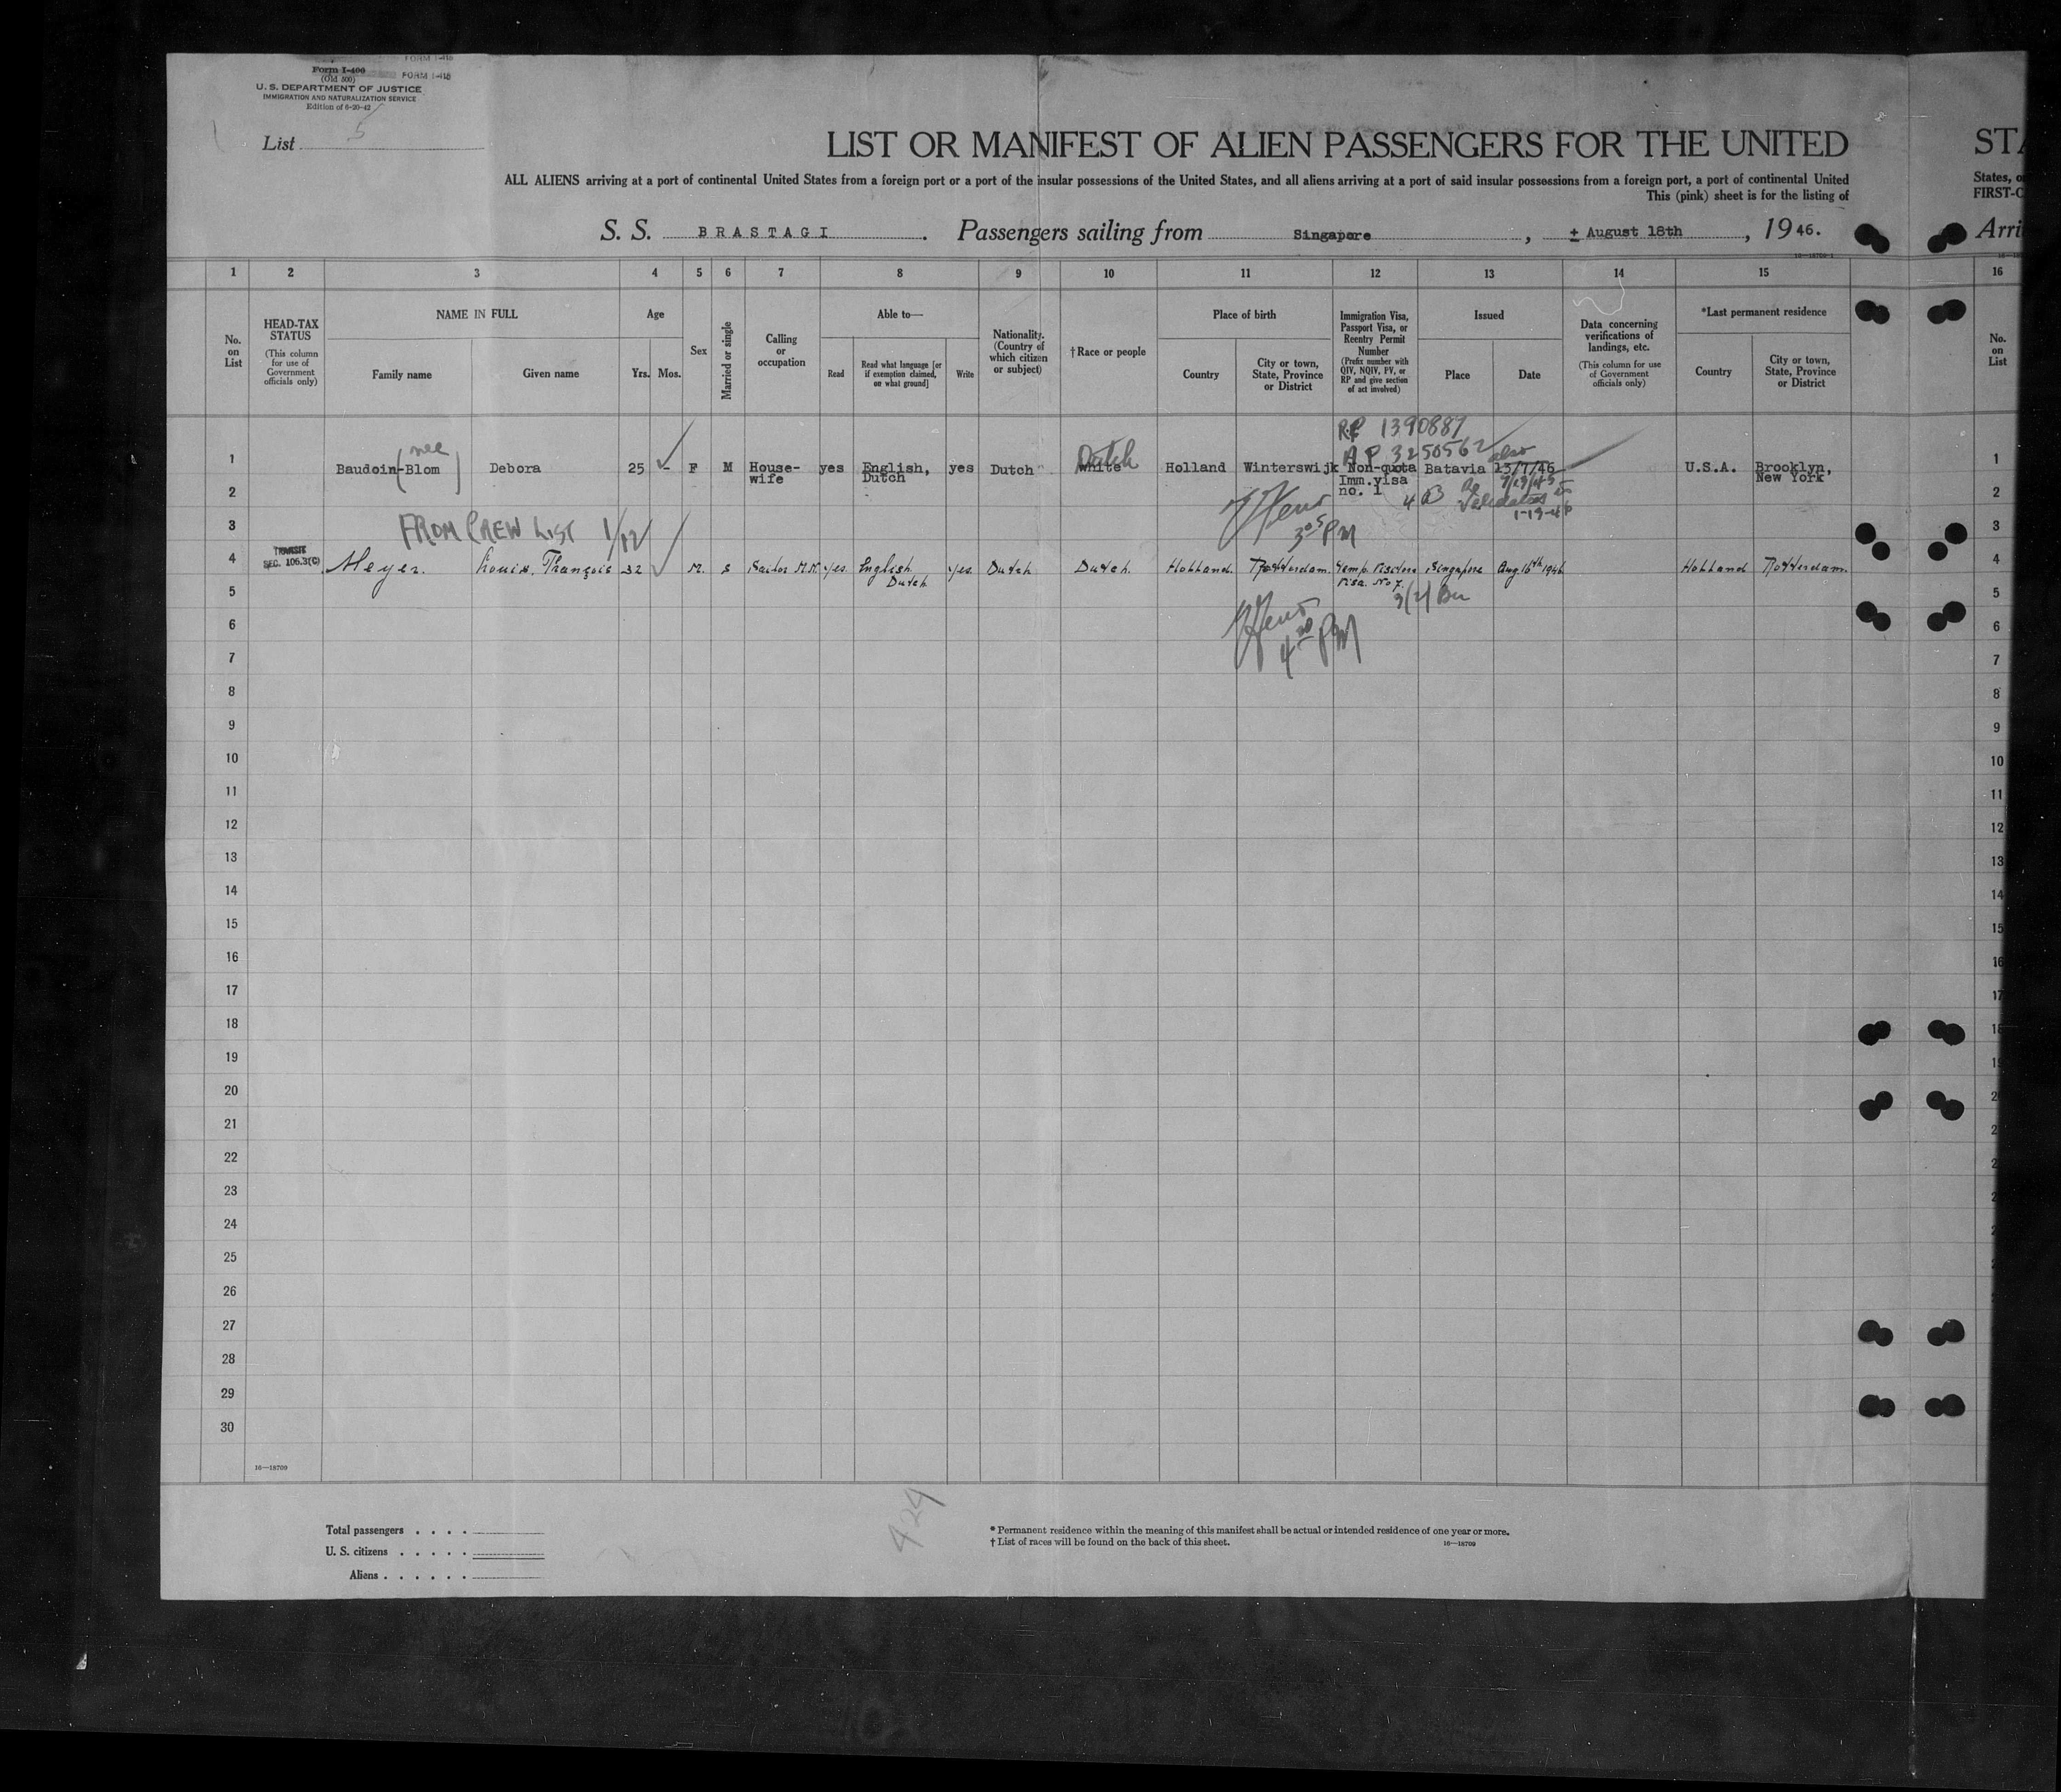 FORM I-415
Form I-400 FORM I-415
(Old 500)
U. S. DEPARTMENT OF JUSTICE
IMMIGRATION AND NATURALIZATION SERVICE
Edition of 6-20-42
List 5
LIST OR MANIFEST OF ALIEN PASSENGERS FOR THE UNITED STA
ALL ALIENS arriving at a port of continental United States from a foreign port or a port of the insular possessions of the United States, and all aliens arriving at a port of said insular possessions from a foreign port, a port of continental United States, o
This (pink) sheet is for the listing of FIRST-C
S. S. BRASTAGI. Passengers sailing from Singapore, ± August 18th, 1946. Arri
1 2 3 4 5 6 7 8 9 10 11 12 13 14 15 16
No. on List
HEAD-TAX STATUS
(This column for use of Government officials only)
NAME IN FULL
Family name
Given name
Age
Yrs. Mos.
Sex
Married or single
Calling or occupation
Able to—
Read
Read what language [or if exemption claimed, on what ground]
Write
Nationality. (Country of which citizen or subject)
†Race or people
Place of birth
Country
City or town, State, Province or District
Immigration Visa, Passport Visa, or Reentry Permit Number
(Prefix number with QIV, NQIV, PV, or RP and give section of act involved)
Issued
Place
Date
Data concerning verifications of landings, etc.
(This column for use of Government officials only)
*Last permanent residence
Country
City or town, State, Province or District
No. on List
RP 1390887
AP 3250562
(nee Dutch also
1 Baudoin-Blom) Debora 25 - F M House-wife yes English, Dutch yes Dutch white Holland Winterswijk Non-quota Imm.visa no. 1 Batavia 23/7/46 U.S.A. Brooklyn, New York 1
2 2
4
305 PM
3 FROM CREW LIST 1/12 3
TRANSIT
SEC. 106.3(C)
4 Meyer. Louis, François 32 M. S Sailor M.N. yes. English Dutch yes. Dutch Dutch. Holland Rotterdam. Temp. Visitors Visa. No 7. Singapore Aug. 16th 1946 Holland Rotterdam. 4
5 3(2) 5
6 6
420 PM
7 7
8 8
9 9
10 10
11 11
12 12
13 13
14 14
15 15
16 16
17 17
18 18
19 19
20 2
21 2
22 2
23 2
24 2
25 2
26
27
28
29
30
16—18709
424
Total passengers . . . .
U. S. citizens . . . . .
Aliens . . . . . .
* Permanent residence within the meaning of this manifest shall be actual or intended residence of one year or more.
† List of races will be found on the back of this sheet.
16—18709